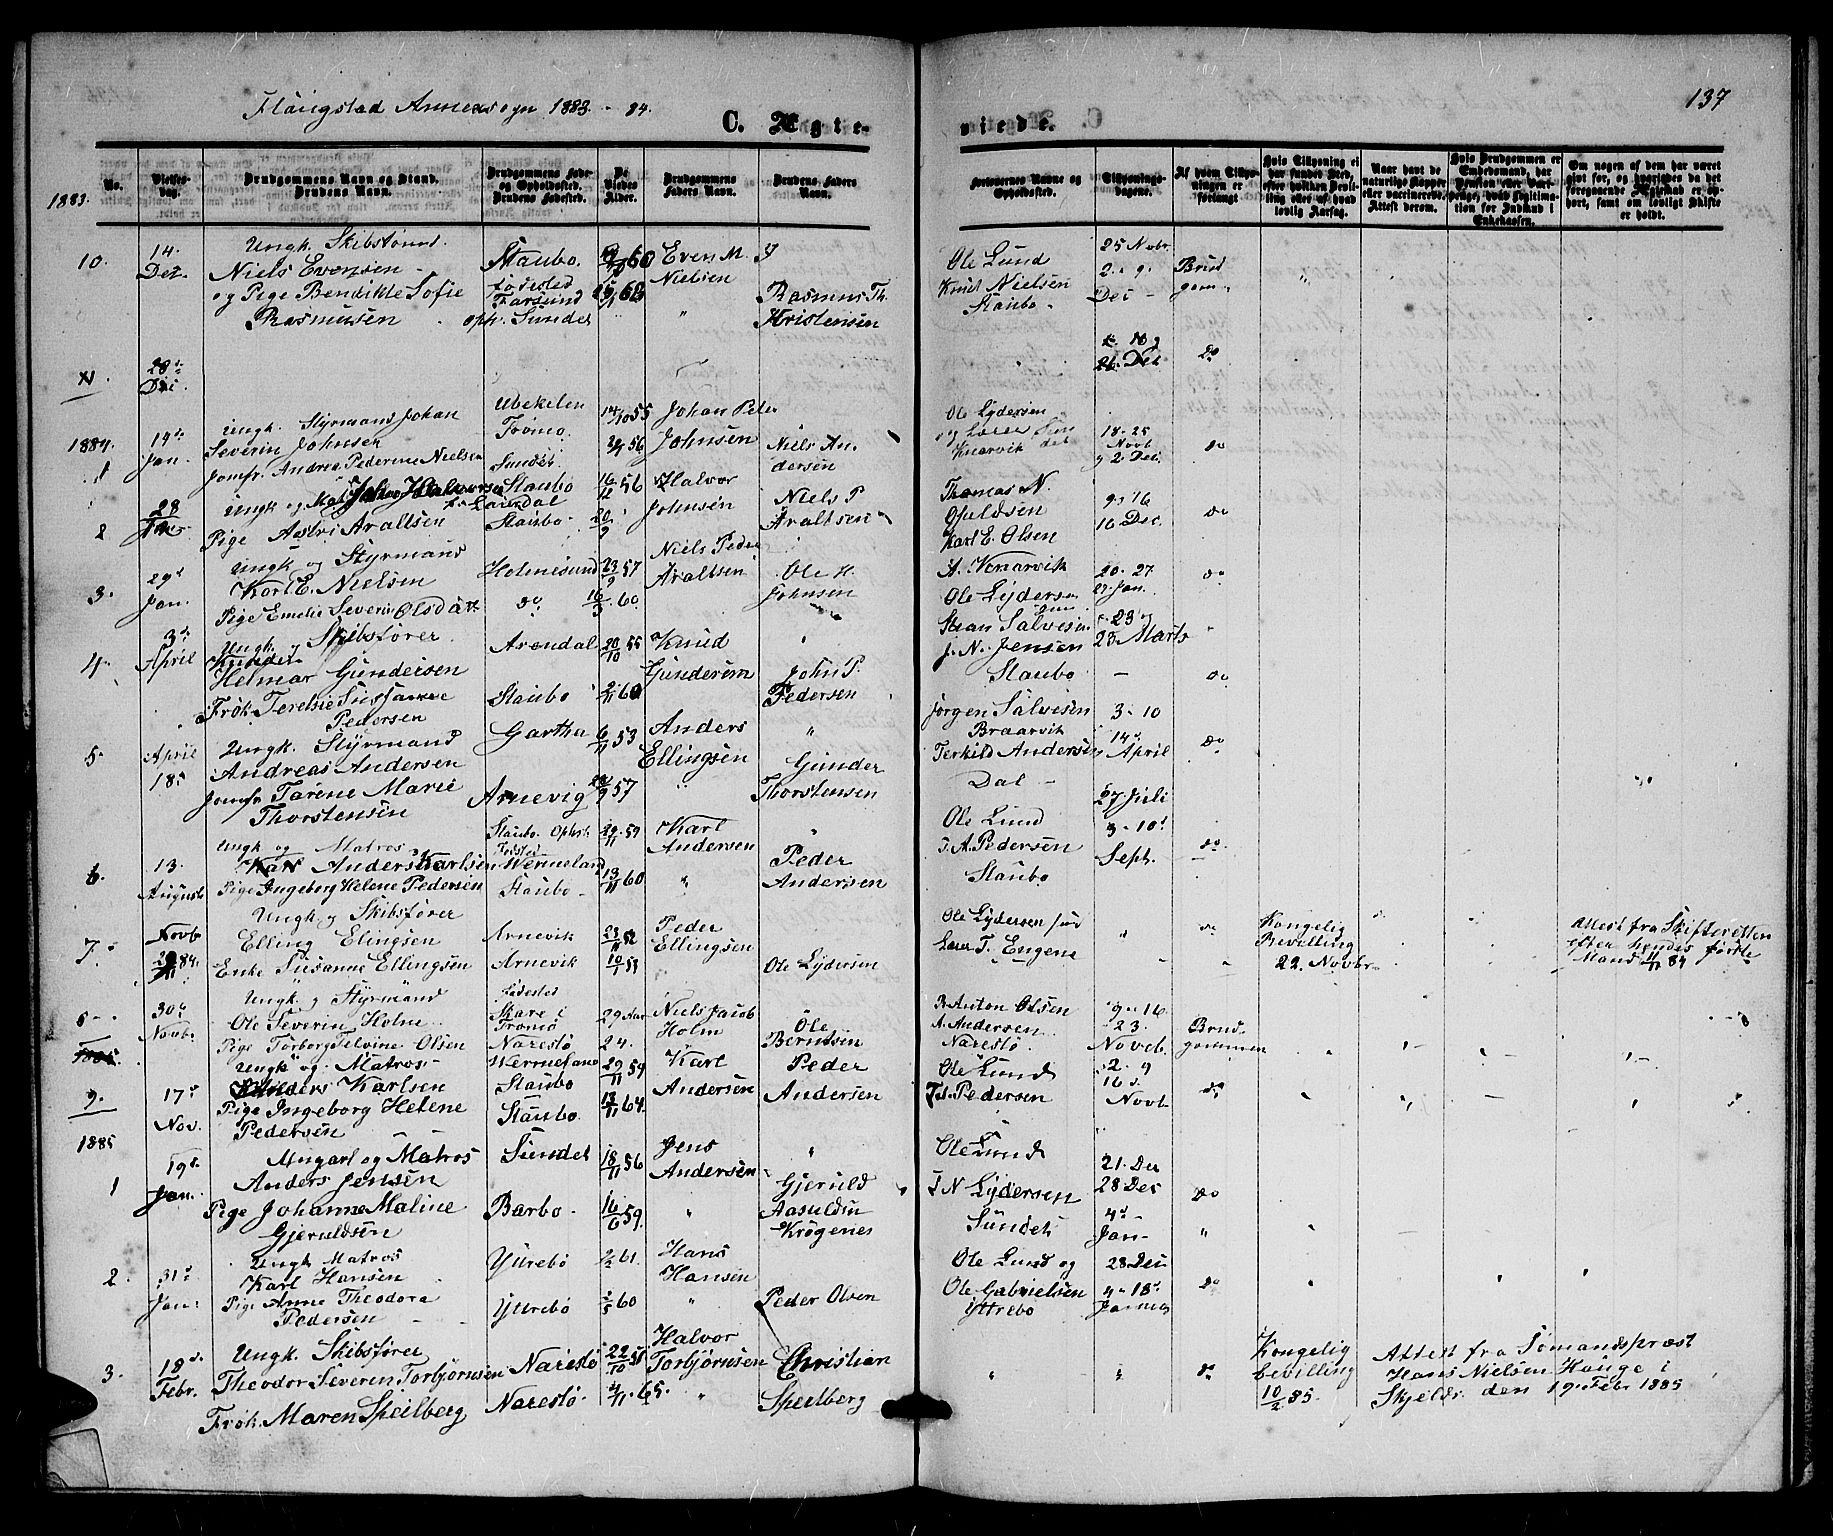 Flangstad Annexsogn 1883 - 84.
137
C. Ægte-
viede.
1883.
No.
Vielses-dag.
Brudgommens Navn og Stand. Brudens Navn.
Brudgommens Føde- og Opholdssted. Brudens Fødested.
De Viedes Alder.
Brudgommens Faders Navn.
Brudens Faders Navn.
Forlovernes Navne og Opholdssted.
Tillysnings-dagene.
Af hvem Tillys-ningen er forlangt
Hvis Tillysning ei har fundet Sted, efter hvilken Bevil-ling eller af hvad lovlig Aarsag.
Naar havt de naturlige Kopper eller vaccinerede. Attest derom.
Hvis Brudgommen er Embedsmand, har Pension eller Vart-penge, hvad Legitima-tion for Indskud i Enkekassen.
Om nogen af dem har været gift før, og hvorledes da det foregaaende Ægteskab er op-hørt, samt om lovligt Skifte er holdt.
10. 14. Dec.
Ungk. Skibstømd.
Niels Evensen
og Pige Bendikte Sofie
Rasmusen
Staubo.
Fødested
Farsund
oph. Sundet
Even M.
Nielsen
Rasmus Th.
Kristensen
Ole Lund
Knut Nielsen
Staubo
25 Novbr
2. 9.
Dec
Brud
gom
28de
Dec
26. Dec
do
1884.
1 14de Jan
Ungk. Styrmand Johan
Severin Johnsen
Jomfr. Andrea Pederine Nielsen
Tromø.
Sundet
14/10 55
Johan Peder
Johnsen
Niels An
dersen
Ole Lydersen
Knarvik
18. 25
Novb
9 2 Dec.
do
2 28
Ungk og Mat John Halvorsen
Pige Astri Araltsen
Staubo
Staubo
16/12 56
20/9
Halvor
Johnsen
Niels P
Araltsen
Thomas N.
Karl E. Olsen
9. 16
16 Dec.
do
3. 29d Jan.
Ungk og Styrmand
Karl E. Nielsen
Pige Emelie Severin Olsdatt
Holmesund
do
23/9 57
16/3 60
Niels Peder
Araltsen
Ole H.
Johnsen
A. Knarvik
Ole Lydersen
20. 27
27 Jan.
do
4 3d April
Ungk. og Skibsfører
Helmar Gundersen
Frøk. Terelne Susanne
Pedersen
Arendal
Staubo
20/10 55
2/11 60
Knud
Gundersen
John P.
Pedersen
Salvesen
J. N. Jensen
Staubo
23 Marts
do
5. April 18d
Ungk. Styrmand
Andreas Andersen
Jomfr Tarene Marie
Thorstensen
Gartha
Arnevig
6/11 53
57
Anders
Ellingsen
Gunder
Thorstensen
Jørgen Salvesen
Braarvik
Terkild Andersen
Dal
3. 10
14d
April
do
6. 13 August
Ungk og Matros
Anders Karlsen
Pige Ingeborg Helene Pedersen
Staubo. Ophst
Fødsted
Wermeland
Staubo
29/11 59
13/11 60
Karl
Andersen
Peder
Andersen
Ole Lund
T. A. Pedersen
Staubo
27 Juli
3. 10d
Sept.
do
7. Novb 84.
Ungk. og Skibsfører
Elling Elingsen
Enke Susanne Ellingsen
Arnevik
Arnevik
23/11 52
Peder
Ellingsen
Ole Lydersen
Ole Lydersen
T. Engene
do
Kongelig
Bevilling
22. Novbr
Attest fra Skifteretten
efter hendes første
Mand 11/11 84
30d Novb.
Ungk. og Styrmand
Ole Severin Holm
Pige Torborg Telvine Olsen
Fødested
Skare i
Tromø
Narestø
29 Aar
24.
Niels Jacob
Holm
Ole
Berntsen
B. Anton Olsen
A. Andersen
Narestø
9. 16
23.
Noveb.
Brud
gommen
9. 17d Nov.
Ungk og Matros
Anders Karlsen
Pige Ingeborg Helene
Pedersen
Wermeland
Staubo
Staubo
29/11 59
13/11 64
Karl
Andersen
Peder
Andersen
Ole Lund
Pedersen
2. 9
16d
Novb
do
1885
1 19d Jan.
Ungarl og Matros
Anders Jensen
Pige Johanne Maline
Gjeruldsen
Sundet
Barbo
18/11 56
16/6 59.
Jens
Andersen
Gjeruld
Aasuldsen
Krøgenes
Ole Lund
T N Lydersen
Sundet
21. Dec
28 Dec
4d
Jan
do
2. 31d Jan.
Ungk Matros
Karl Hansen
Pige Anne Theodora
Pedersen
Yttrebø
Yttrebø
61.
60
Hans
Hansen
Peder Olsen
Ole Lund og
Ole Gabrielsen
Yttrebø
28 Dec
4. 18d
Januar
do
3. 18d Febr.
Ungk. Skibsfører
Theodor Severin Torbjørnsen
Frøk. Maren Speilberg
Narestø
Narestø
22/10 58
65.
Halvor
Torbjørnsen
Christian
Speilberg
do
Kongelig
bevilling
10/2 85.
Attest fra Sømandspræst
Hans Nielsen Hauge i
Skjelds den 19. Febr 1885